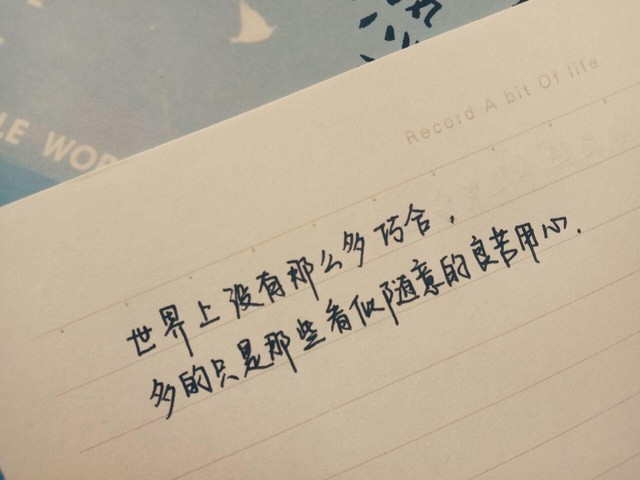 LE WOR
Record A bit Of life
世界上没有那么多巧合，
多的只是那些看似随意的良苦用心.